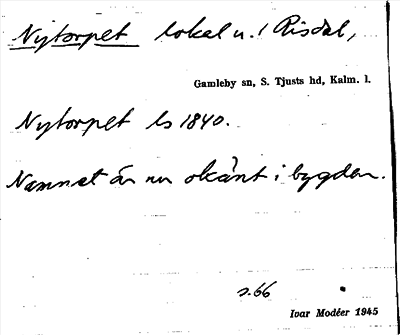 Nytorpet lokal u. / Risdal,
Gamleby sn, S. Tjusts hd, Kalm. l.
Nytorpet ls 1840.
Namnet är nu okänt i bygden.
s. 66
Ivar Modéer 1945